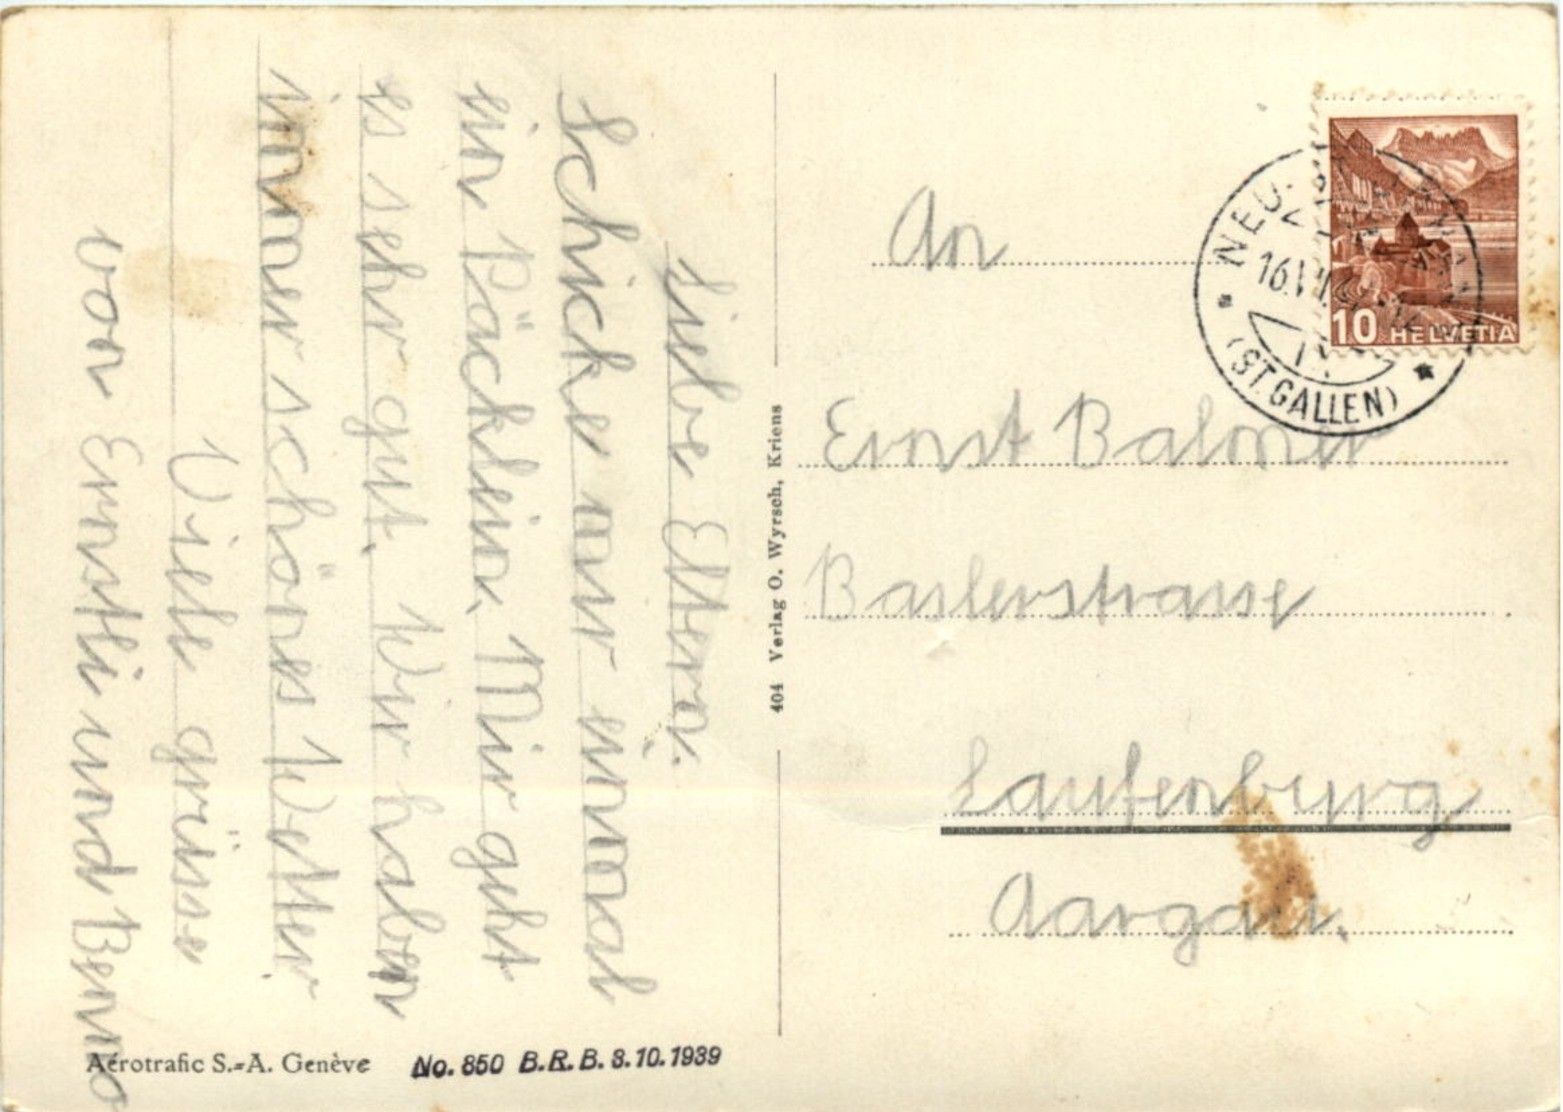 Liebe Eltern.
Schicke mir einmal
ein Päcklein. Mir geht
es sehr gut. Wir haben
immer schönes Wetter
Viele grüsse
von Ernstli und Benno
Aérotrafic S.-A. Genève
No. 850 B.R.B. 3.10.1939
404 Verlag O. Wyrsch, Kriens
10 HELVETIA
NEU-
16.
(ST. GALLEN)
An
Ernst Balmer
Baslerstrasse
Laufenburg
Aargau.